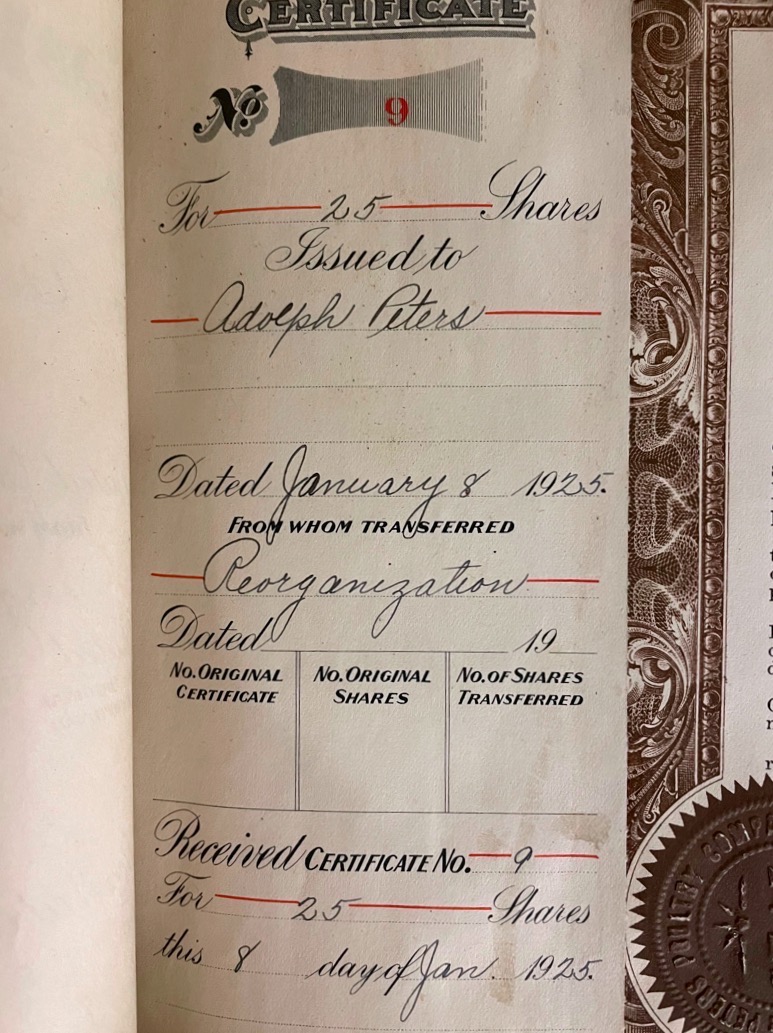 CERTIFICATE
No 9
For 25 Shares
Issued to
Adolph Peters
Dated January 8 1925.
FROM WHOM TRANSFERRED
Reorganization
Dated 19
No. ORIGINAL CERTIFICATE
No. ORIGINAL SHARES
No. OF SHARES TRANSFERRED
Received CERTIFICATE No. 9
For 25 Shares
this 8 day of Jan. 1925.
PETERS POULTRY COMPA